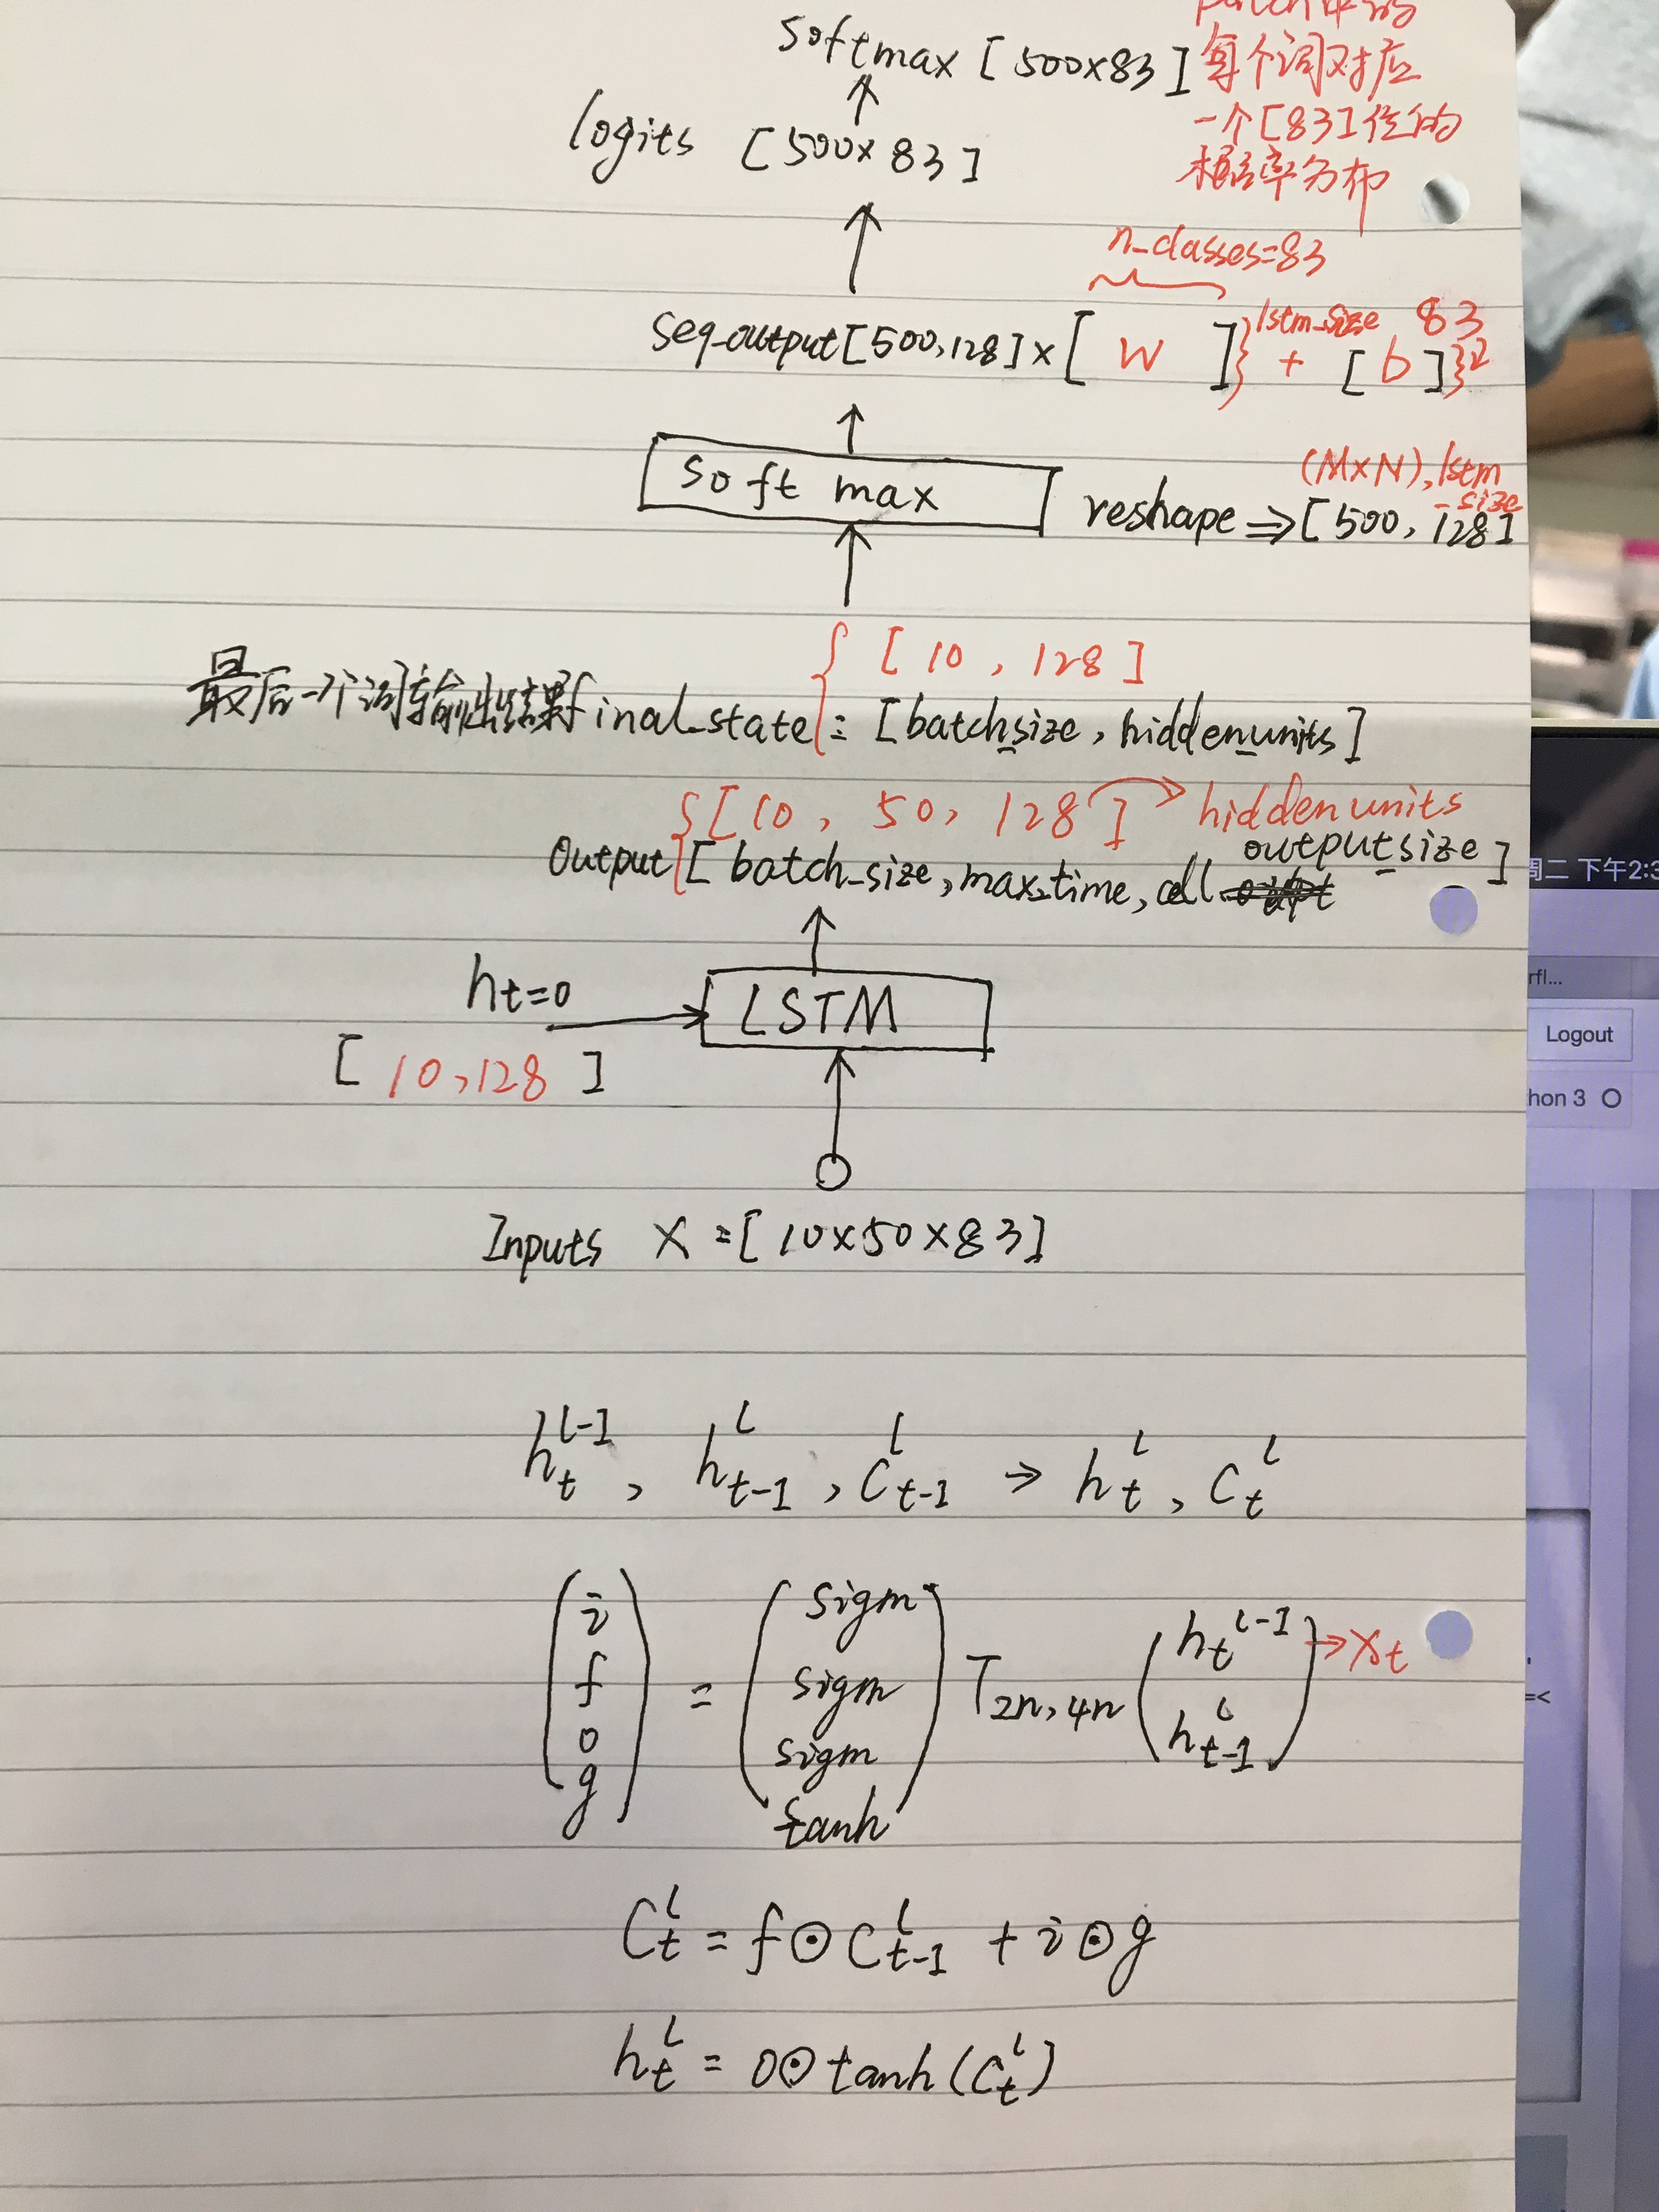 softmax [500×83]
每个词对应
一个[83]位的
概率分布
logits [500×83]
n_classes=83
seq_output[500,128]×[ W ]} lstm_size + [ b ]} 83
soft max
reshape ⇒ [500, 128]
(M×N), lstm_size
{ [10, 128]
最后一个词输出结果 final_state = [batch_size, hidden_units]
{[10, 50, 128] → hidden units
Output [batch_size, max_time, cell. output_size]
h t=0
LSTM
[10,128]
Inputs X = [10×50×83]
h_t^{l-1}, h_{t-1}^l, C_{t-1}^l → h_t^l, C_t^l
(i f o g) = (sigm sigm sigm tanh) T_{2n,4n} (h_t^{l-1} h_{t-1}^l) → x_t
C_t^l = f⊙C_{t-1}^l + i⊙g
h_t^l = o⊙tanh(C_t^l)
周二 下午2:3
rfl...
Logout
hon 3
=<